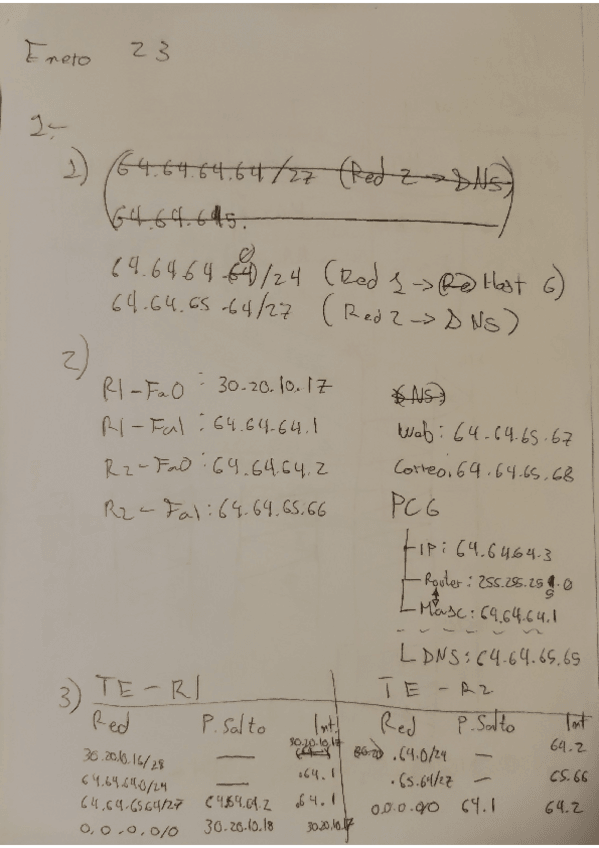 Enero 23
1.-
1) 64.64.64.64/27 (Red 2 → DNS)
64.64.
64.64.64.0/24 (Red 1 → Host 6)
64.64.65.64/27 (Red 2 → DNS)
2)
R1-Fa0 : 30.20.10.17
R1-Fa1 : 64.64.64.1
R2-Fa0 : 64.64.64.2
R2-Fa1 : 64.64.65.66
DNS
Web: 64.64.65.67
Correo: 64.64.65.68
PC6
IP: 64.64.64.3
Router: 255.255.255.0
Masc: 64.64.64.1
DNS: 64.64.65.65
3) TE - R1
Red P. Salto Int.
30.20.10.16/28 — 30.20.10.17
64.64.64.0/24 — .64.1
64.64.65.64/27 64.64.64.2 .64.1
0.0.0.0/0 30.20.10.18 30.20.10.17
TE - R2
Red P. Salto Int
.64.0/24 — 64.2
.65.64/27 — 65.66
0.0.0.0/0 64.1 64.2